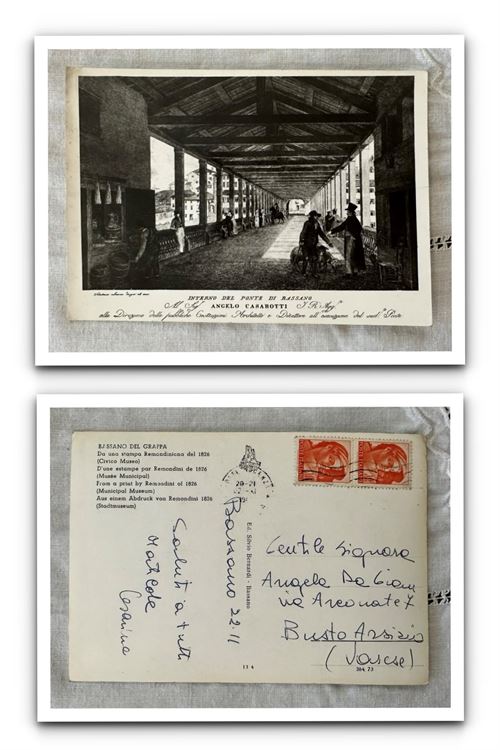 INTERNO DEL PONTE DI BASSANO
Al Sig.r ANGELO CASAROTTI I. R. Agg.to
alla Direzione delle pubbliche Costruzioni Architetto e Direttore all' del sud.o Ponte
BASSANO DEL GRAPPA
Da una stampa Remondiniana del 1826
(Civico Museo)
D'une estampe par Remondini de 1826
(Musée Municipal)
From a print by Remondini of 1826
(Municipal Museum)
Aus einem Abdruck von Remondini 1826
(Stadtmuseum)
20-21
Bassano 22.11
Saluti a tutti
Matilde
Cesarina
Ed. Silvio Bernardi - Bassano
11 4
Gentile Signora
Angela Da
via Arconate 7
Busto Arsizio
(Varese)